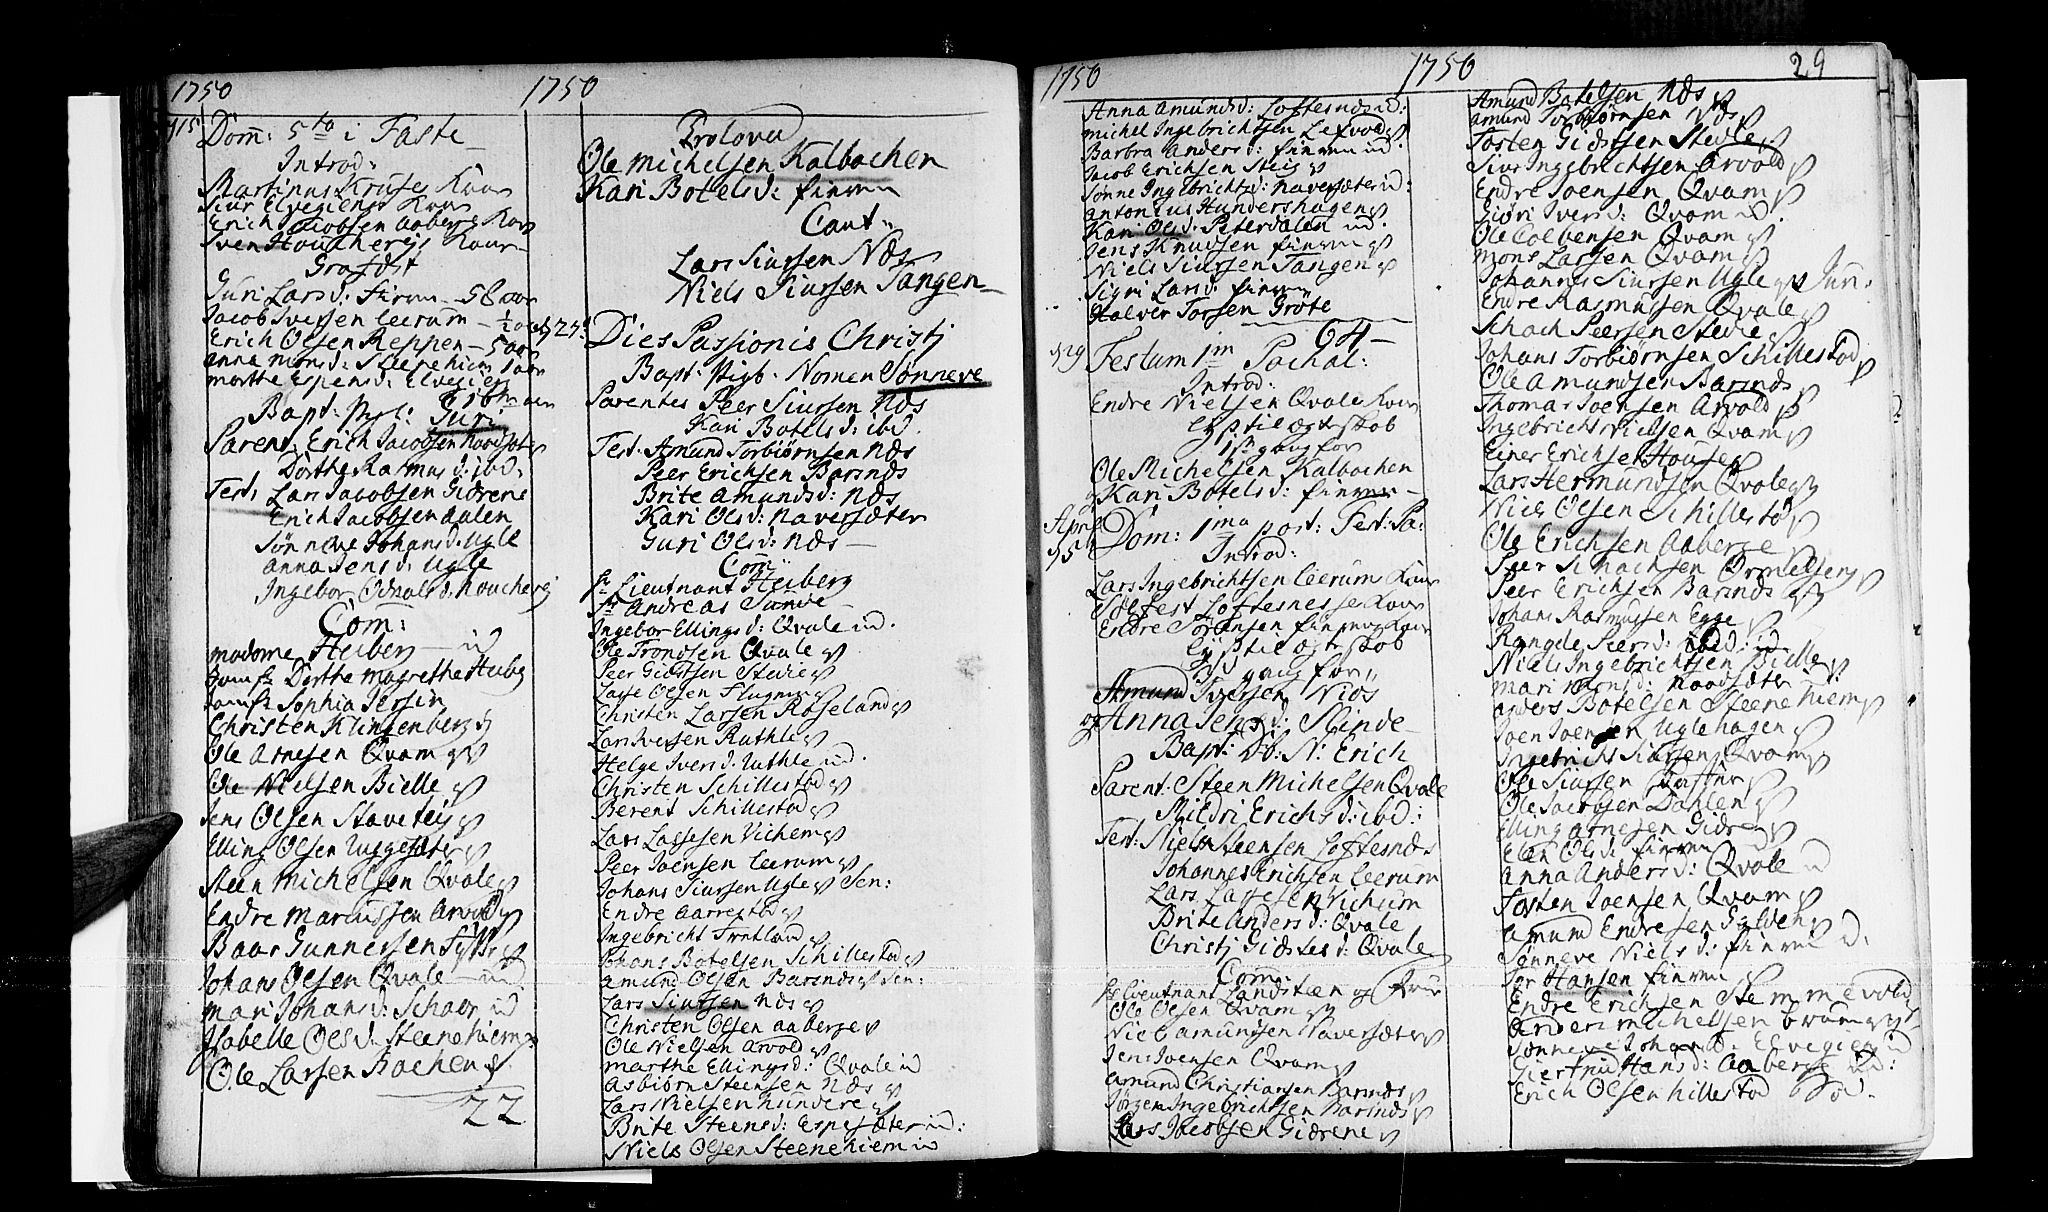 1750
1750
15 Dom: 5ta i Faste
Introd:
Martinus Kruses Kone
Siur Elvegiens Kone
Erich Jacobsen Aaberg Kone
Sven Houcherigs Kone
Grafæst
Guri Larsd: Finnen
Jacob Iversen Leerum
Erich Olsen Reppen
Anna Monsd: Steenehiem
Marthe Espensd: Elvegien
Bapt: Guri
Parent: Erich Jacobsen
Dorthe Rasmusd: ibd:
Test: Lars Jacobsen Gidrene
Erich Jacobsen Aalen
Sønneve Johansd: Ugle
Anna Jensd: Ugle
Ingebor Houcherig
Com:
Madame Heiberg
Jomfr Dorthe Magrethe Heiberg
Jomfr Sophia
Christen Klingenberg
Ole Arnesen Qvam
Ole Nielsen Bielle
Jens Olsen Stavetey
Elling Olsen Uggesæter
Steen Michelsen Qvale
Endre Marcussen Arvold
Baar Gunnersen
Johans Olsen Qvale
Mari Johansd: Schaar ux
Isabelle Olsd: Steenehiem
Ole Larsen Bachen
22
Trolova
Ole Michelsen Kalbachen
Kari Botelsd: Finnen
Caut:
Lars Siursen Næs
Niels Siursen Tangen
25 Dies Passionis Christi
Bapt: Pigb: Nomen Sønneve
Parentes Peer Siursen Næs
Kari Botelsd: ibd:
Test: Amund Torbiørnsen Næs
Peer Erichsen Barsnæs
Brite Amundsd: Næs
Kari Olsd: Naversæter
Guri Olsd: Næs
Com:
Hr Lieutnant Heiberg
Hr Andreas
Ingebor Ellingsd: Qvale ux
Ole Trondsen Qvale
Peer Giøstsen Stedie
Lasse Olsen Flugem
Christen Larsen Røseland
Lars Iversen Ruthle
Helge Iversd: Ruthle ux
Christen Schillestad
Berent Schillestad
Lars Lassesen Vichem
Peer Joensen Leerum
Johans Siursen Ugle Sen:
Endre Aarrestad
Ingebricht
Johans Botelsen Schillestad
Amund Olsen Barsnæs Sen:
Lars Siursen Næs
Christen Olsen Aaberge
Ole Nielsen Arvold
Marthe Ellingsd: Qvale ux
Asbiørn Steensen Næs
Lars Nielsen Hundere
Brite Steensd: Espesæter ux:
Niels Olsen Steenehiem ux
1750
1750
29
Anna Amundsd: Loftesnæs ux:
Michel Ingebrichtsen Lexvold
Barbra Andersd: Finnen ux:
Jacob Erichsen Steig
Sønne Ingebrichtsd: Naversæter ux:
Antonius Hundershagen
Kari Olsd: Peterdalen ux:
Jens Knudsen Finnen
Niels Siursen Tangen
Sigri Larsd: Finnen
Halver Torsen Grøte
64
29 Festum 1m Pachal:
Introd:
Endre Nielsen Qvale Kone
Lystil ægteskab
1ste gang for
Ole Michelsen Kalbachen
og Kari Botelsd: Finnen
April 5 Dom: 1ma post: Fest: Pa:
Introd:
Lars Ingebrichtsen Leerum Kone
Solfest Loftesnes Kone
Endre Kone
Lystil ægteskob
gang for
Amund Iversen Næs
og Anna Jensd: Slinde
Bapt: N: Erich
Parent: Steen Michelsen Qvale
Mildri Erichsd: ibd:
Test: Niels Steensen Loftesnæs
Johannes Erichsen Leerum
Lars Lassesen Vichum
Brite Andersd: Qvale
Christi Giøstesd: Qvale
Com:
Hr Lieutnant Landsteen og Frue
Ole Olsen Qvam
Niels Amundsen Naversæter
Jens Joensen Qvam
Amund Christiansen Barsnæs
Jørgen Ingebrichtsen Barsnæs
Lars Jacobsen Gidrene
Amund Botelsen Næs
Amund Torbiørnsen Næs
Tosten Giøstsen Stedie
Siur Ingebrichtsen Arvold
Endre Joensen Qvam
Giøri Iversd: Qvam ux
Ole Colbensen Qvam
Mons Larsen Qvam
Johannes Siursen Ugle Jun:
Endre Rasmusen Qvale
Schach Peersen Stedie
Johans Torbiørnsen Schillestad
Ole Amundsen Barsnæs
Thomas Joensen Arvold
Ingebricht Nielsen Qvam
Einer Erichsen House
Lars Hermundsen Qvale
Niels Olsen Schillestad
Ole Erichsen Aaberge
Peer Schachsen Ormelseng
Peer Erichsen Barsnæs
Johans Rasmussen Egge
Rangele Peersd: ibd: ux
Niels Ingebrichtsen Bielle
Mari Noodsæter
Anders Botelsen Steenehiem
Joen Joensen Uglehagen
Ingebricht Siursen Qvam
Ole Siursen
Ole Jacobsen Dahlen
Elling Arnesen Gidrene
Elen Olsd: Finnen
Anna Andersd: Qvale
Tosten Joensen Qvam
Amund Endresen Eylden
Sønneve Nielsd: Finnen
Tor Hansen Finnen
Endre Erichsen Stemmevold
Anders Michelsen Qvam
Sønneve Johansd: Elvegien ux
Giertrud Hansd: Aaberge ux:
Erich Olsen Hillestad